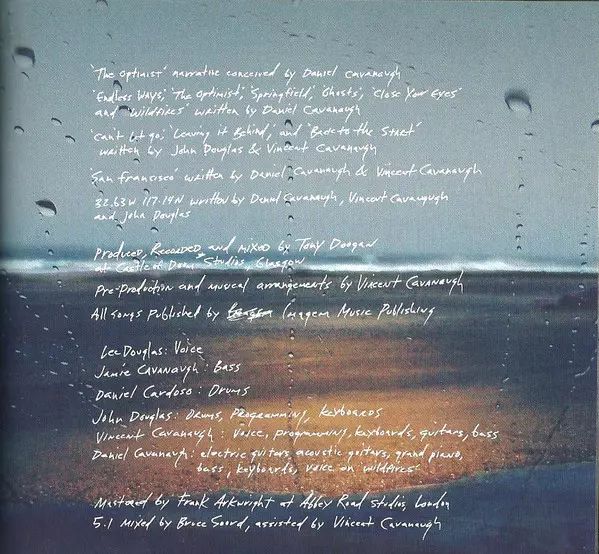 'The Optimist' narrative conceived by Daniel Cavanaugh
'Endless Ways,' 'The Optimist,' 'Springfield,' 'Ghosts,' 'Close Your Eyes'
and 'Wildfires' written by Daniel Cavanaugh
'Can't Let Go,' 'Leaving it Behind,' and 'Back to the Start'
written by John Douglas & Vincent Cavanaugh
'San Francisco' written by Daniel Cavanaugh & Vincent Cavanaugh
32.63N 117.14W written by Daniel Cavanaugh, Vincent Cavanaugh
and John Douglas
Produced, Recorded, and mixed by Tony Doogan
at Castle of Doom Studios, Glasgow
Pre-Production and musical arrangements by Vincent Cavanaugh
All songs published by Imagem Music Publishing
Lee Douglas: Voice
Jamie Cavanaugh: Bass
Daniel Cardoso: Drums
John Douglas: Drums, programming, keyboards
Vincent Cavanaugh: Voice, programming, keyboards, guitars, bass
Daniel Cavanaugh: electric guitars, acoustic guitars, grand piano,
bass, keyboards, voice on 'wildfires'
Mastered by Frank Arkwright at Abbey Road Studios, London
5.1 mixed by Bruce Soord, assisted by Vincent Cavanaugh